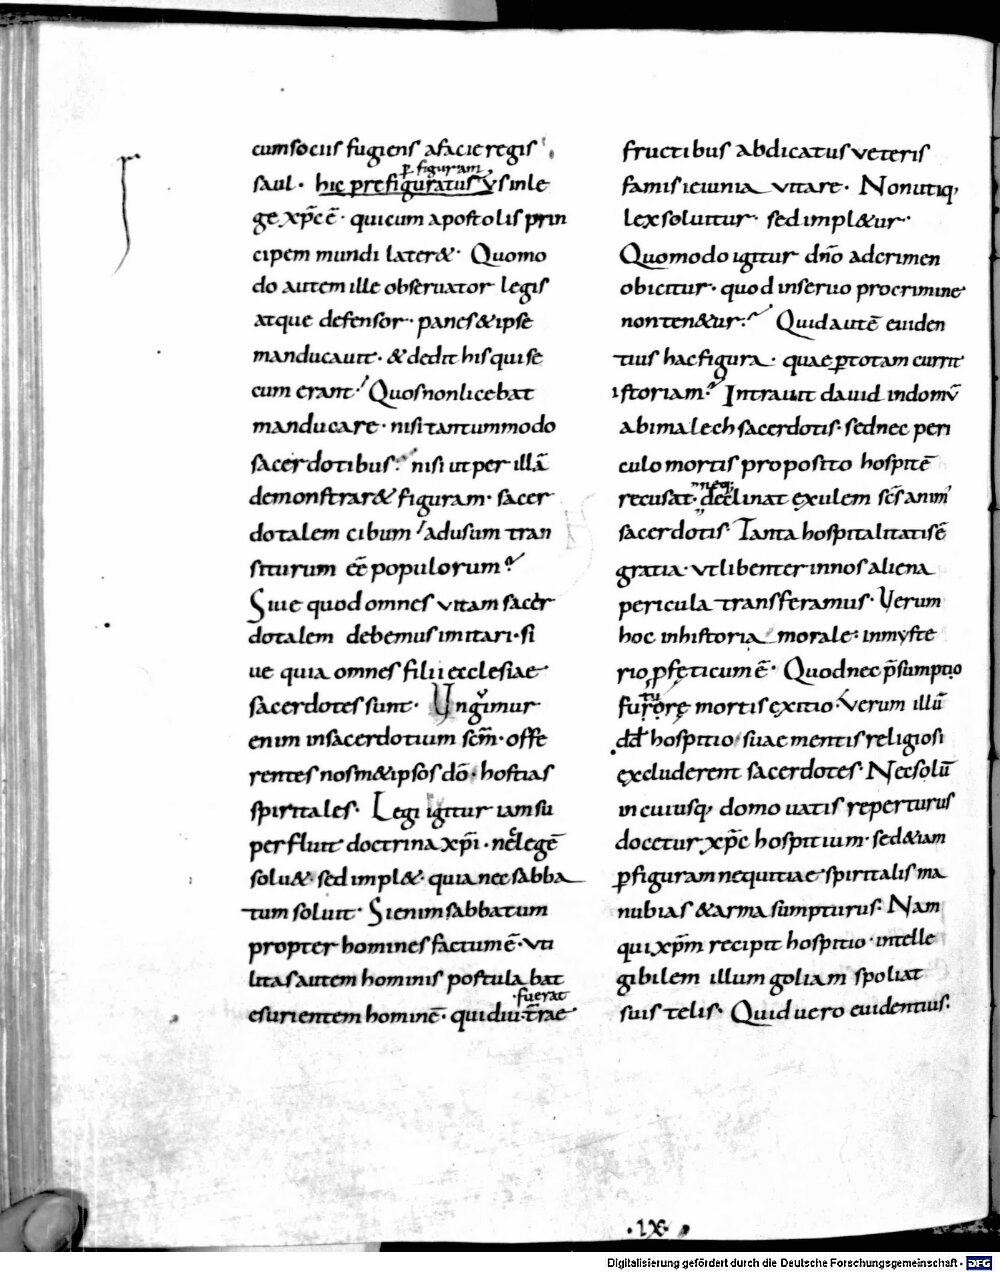 cum sociis fugiens a facie regis
p̲ figuram
saul · hic prefiguratus ÿs in le
ge xp̄c ē · qui cum apostolis prin
cipem mundi later& · Quomo
do autem ille observator legis
atque defensor · panes & ipse
manducavit · & dedit his qui se
cum erant · Quos non licebat
manducare · nisi tantummodo
sacerdotibus · nisi ut per illā
demonstrar& figuram · sacer
dotalem cibum ad usum tran
siturum eē populorum ?
Sive quod omnes vitam sacer
dotalem debemus imitari · si
ve quia omnes filii ecclesiae
sacerdotes sunt · Ungimur
enim in sacerdotium scm̄ · offe
rentes nosm& ipsos dō · hostias
spiritales · Legi igitur iam su
perfluit doctrina xp̄i · nec legē
solu& · sed impl& · quia nec sabba
tum soluit · Si enim sabbatum
propter homines factum ē · uti
litas autem hominis postulabat
· fuerat
esurientem hominē · qui diu t̄rae
fructibus abdicatus veteris
famis ieiunia vitare · Non utiq,
lex soluitur · sed impl&ur ·
Quomodo igitur dn̄o ad crimen
obicitur · quod in servo pro crimine
non ten&ur ? Quid autē eviden
tius hac figura · quae p̲ totam currit
istoriam ? Intravit david in domū
abimalech sacerdotis · sed nec peri
culo mortis proposito hospitē
neq;
recusat · declinat exulem scs̄ anim̄
sacerdotis · Tanta hospitalitatis ē
gratia · ut libenter in nos aliena
pericula transferamus · Verum
hoc in historia morale · in myste
rio p̲feticum ē · Quod nec p̄sumptio
tu
furore mortis exitio · verum illū
dd̄ hospitio suae mentis religiosi
excluderent sacerdotes · Nec solū
in cuiusq, domo vatis reperturus
docetur xp̄c hospitium · sed & iam
p̲ figuram nequitiae spiritalis ma
nubias & arma sumpturus · Nam
qui xp̄m recipit hospitio · intelle
gibilem illum goliam spoliat
suis telis · Quid vero evidentius ·
· IX ·
Digitalisierung gefördert durch die Deutsche Forschungsgemeinschaft · DFG